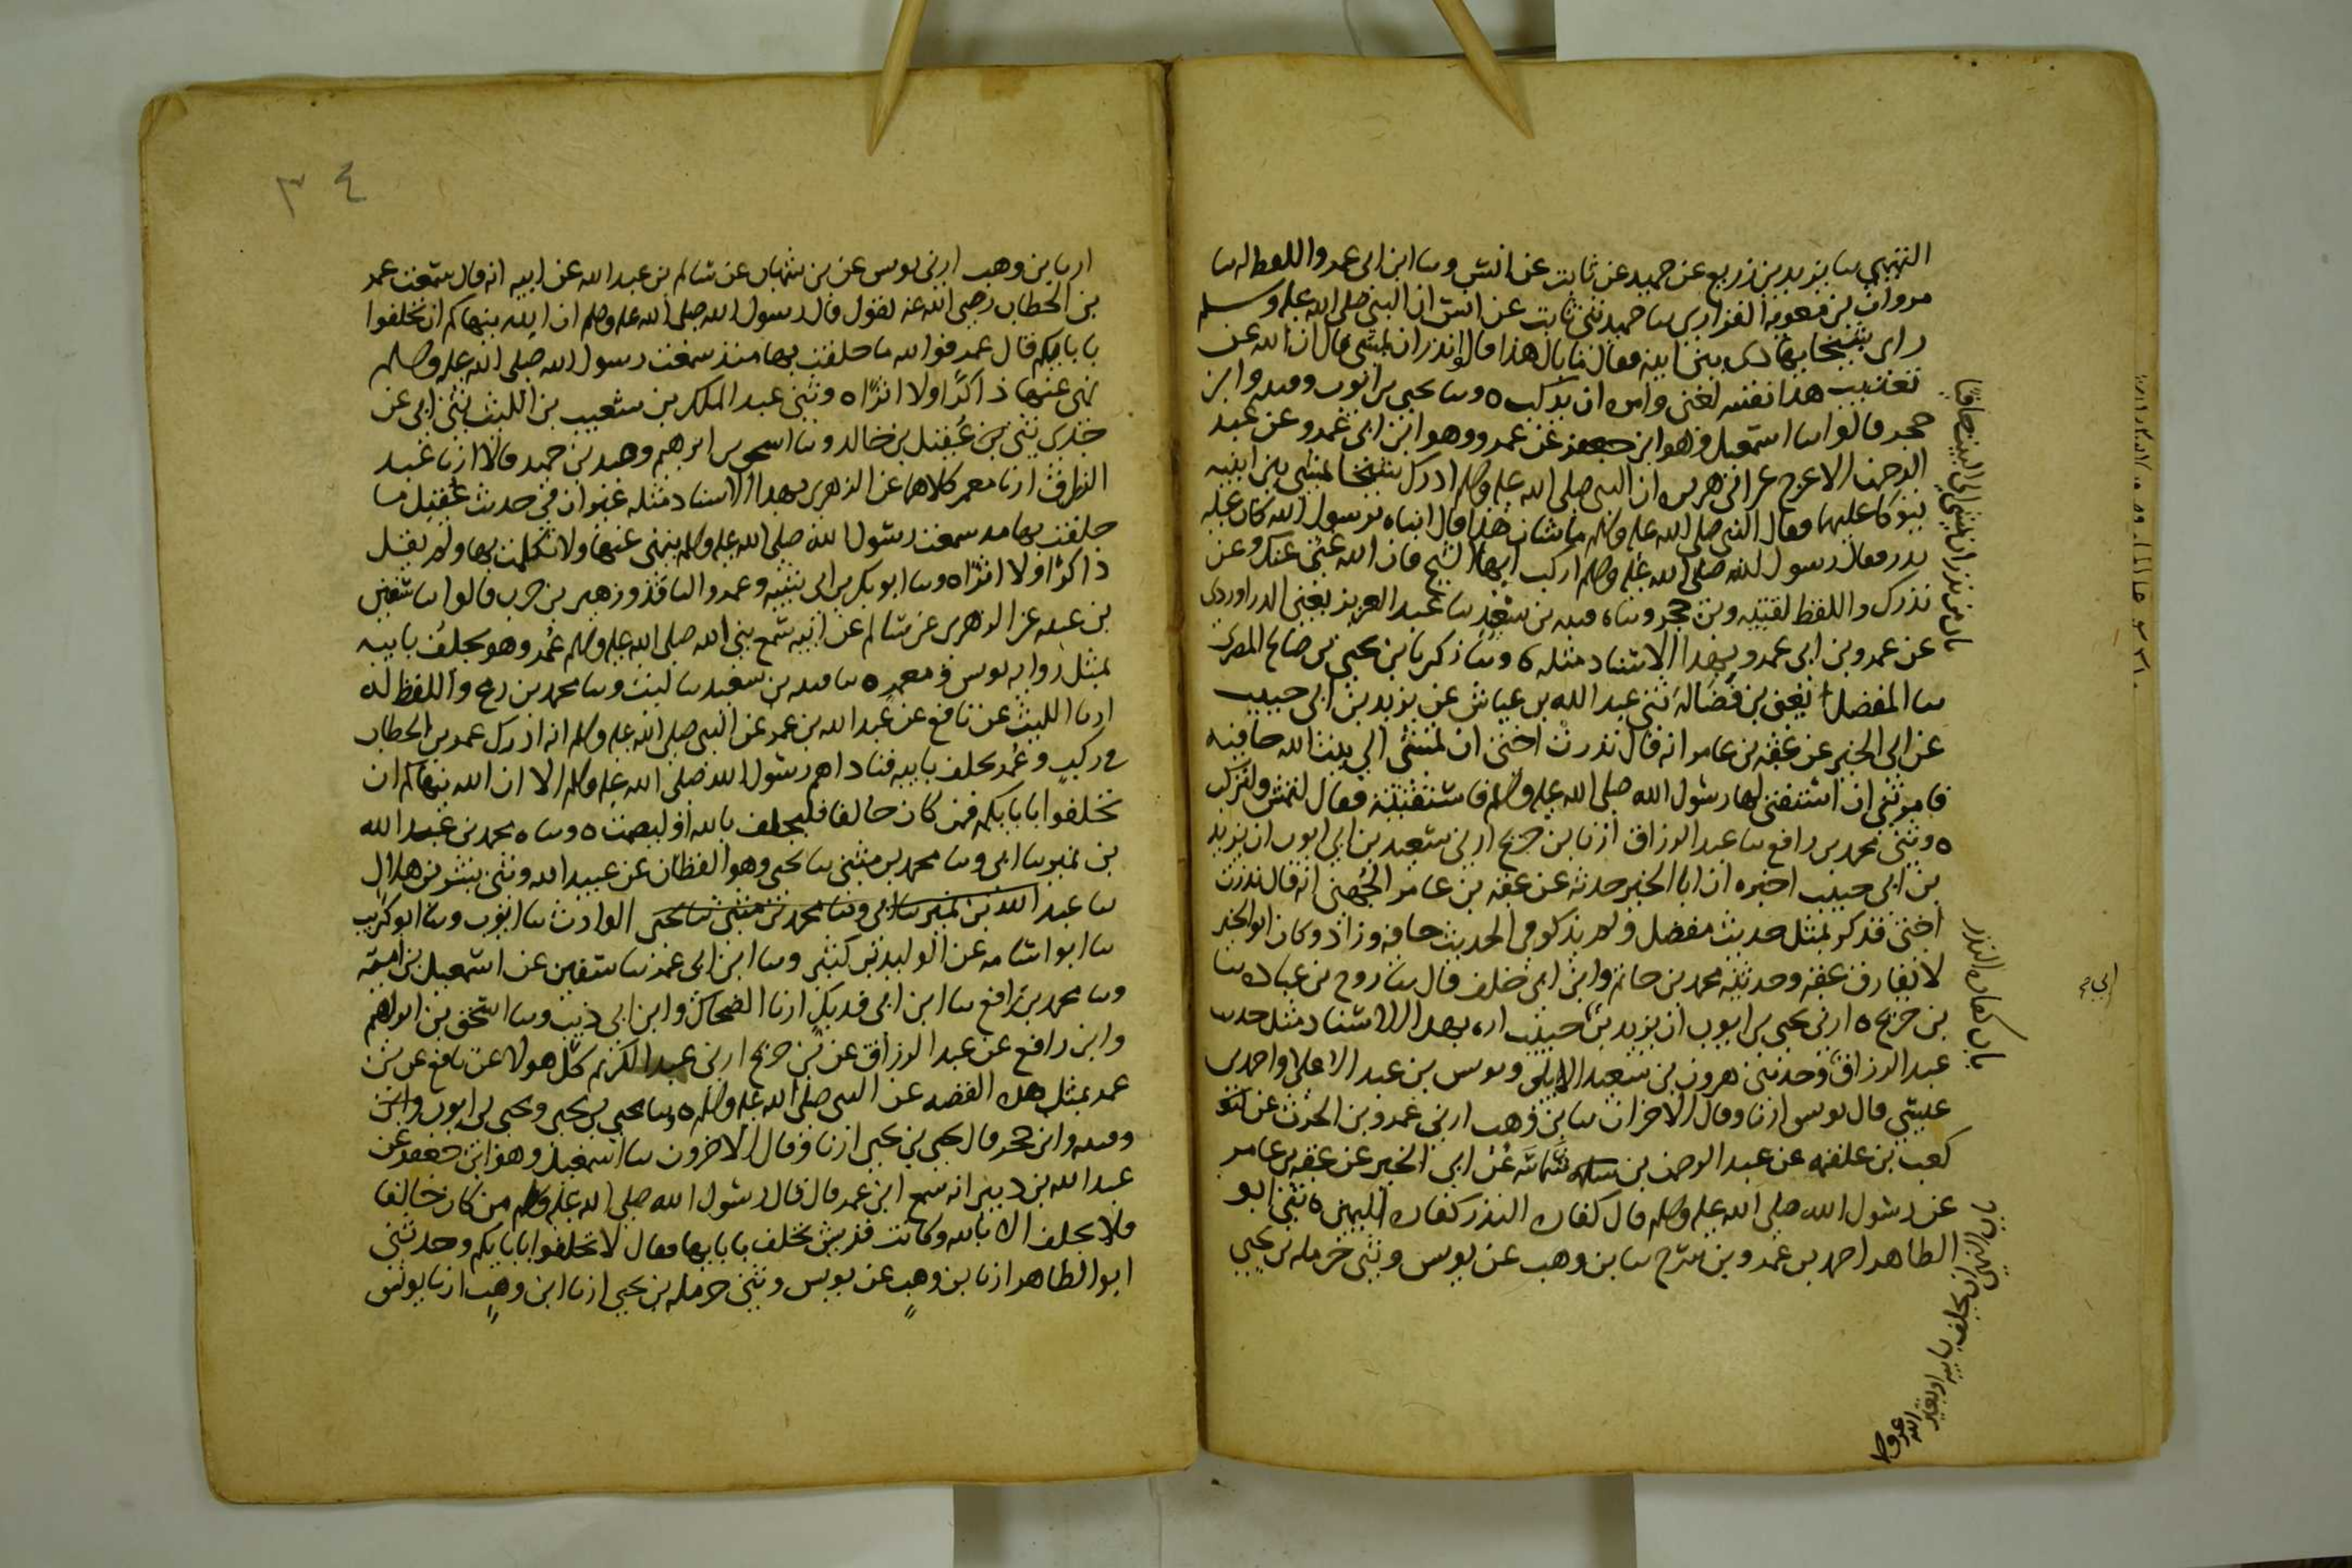 التميمي سا يزيد بن زريع عن حميد عن ثابت عن انس وسا ابن ابي عمر واللفظ له سا
مروان بن معوية الفزاري سا حميد ثني ثابت عن انس ان النبي صلى الله عليه وسلم
راى شيخا يهادى بين ابنيه فقال ما بال هذا قالوا نذر ان يمشي قال ان الله عن
تعذيب هذا نفسه لغني وامره ان يركب ٥ وسا يحيى بن ايوب وقتيبه وابن
حجر قالوا سا اسمعيل وهو ابن جعفر عن عمرو وهو ابن ابي عمرو عن عبد
الرحمن الاعرج عن ابي هريرة ان النبي صلى الله عليه وسلم ادرك شيخا يمشي بين ابنيه
يتوكا عليهما فقال النبي صلى الله عليه وسلم ما شان هذا قال ابناه يرسول الله كان عليه
نذر فقال رسول الله صلى الله عليه وسلم اركب ايها الشيخ فان الله غني عنك وعن
نذرك واللفظ لقتيبه وبن حجر وسا ٥ قتيبه بن سعيد سا عبد العزيز يعني الدراوردي
عن عمرو بن ابي عمرو بهذا الاسناد مثله ٥ وسا زكريا بن يحيى بن صالح المصري
سا المفضل يعني بن فضالة ثني عبد الله بن عياش عن يزيد بن ابي حبيب
عن ابي الخير عن عقبه بن عامر انه قال نذرت اختي ان تمشي الى بيت الله حافيه
فامرتني ان استفتي لها رسول الله صلى الله عليه وسلم فاستفتيته فقال لتمش ولتركب
٥ وثني محمد بن رافع سا عبد الرزاق ارنا بن جريج ارني سعيد بن ابي ايوب ان يزيد
بن ابي حبيب اخبره ان ابا الخير حدثه عن عقبه بن عامر الجهني انه قال نذرت
اختي فذكر بمثل حديث مفضل ولم يذكر في الحديث حافيه وزاد وكان ابو الخير
لا يفارق عقبه وحدثنيه محمد بن حاتم وابن ابي خلف قال سا روح بن عباده سا
بن جريج ٥ ارني يحيى بن ايوب ان يزيد بن حبيب اره بهذا الاسناد مثل حديث
عبد الرزاق وحدثني هرون بن سعيد الايلي ويونس بن عبد الاعلى واحمد بن
عيسى قال يونس ارنا وقال الاخران سا بن وهب ارني عمرو بن الحرث عن
كعب بن علقمه عن عبد الرحمن بن شماسه عن ابي الخير عن عقبه بن عامر
عن رسول الله صلى الله عليه وسلم قال كفاره النذر كفاره اليمين ٥ ثني ابو
الطاهر احمد بن عمرو بن سرح سا بن وهب عن يونس وثني حرمله بن يحيى
باب من نذر ان يمشي الى البيت حافيا
باب كفاره النذر
ابي
باب النهي ان يحلف بابيه او بغير
الله عز وجل
٣٤
ارنا بن وهب ارني يونس عن بن شهاب عن سالم بن عبد الله عن ابيه انه قال سمعت عمر
بن الخطاب رضي الله عنه يقول قال رسول الله صلى الله عليه وسلم ان الله ينهاكم ان تحلفوا
بابايكم قال عمر فوالله ما حلفت بها منذ سمعت رسول الله صلى الله عليه وسلم
نهى عنها ذاكرا ولا اثرا ٥ وثني عبد الملك بن شعيب بن الليث ثني ابي عن
جدي ثني بن عقيل بن خالد وسا اسحق بن ابرهيم وعبد بن حميد قالا ارنا عبد
الرزاق ارنا معمر كلاهما عن الزهري بهذا الاسناد مثله غير ان في حديث عقيل ما
حلفت بها مذ سمعت رسول الله صلى الله عليه وسلم ينهى عنها ولا تكلمت بها ولم يقل
ذاكرا ولا اثرا ٥ وسا ابو بكر بن ابي شيبه وعمرو الناقد وزهير بن حرب قالوا سا سفين
بن عيينه عن الزهري عن سالم عن ابيه سمع نبي الله صلى الله عليه وسلم عمر وهو يحلف بابيه
بمثل روايه يونس ومعمر ٥ سا قتيبه بن سعيد سا ليث وسا محمد بن رمح واللفظ له
ارنا الليث عن نافع عن عبد الله بن عمر عن النبي صلى الله عليه وسلم انه ادرك عمر بن الخطاب
في ركب وعمر يحلف بابيه فناداهم رسول الله صلى الله عليه وسلم الا ان الله ينهاكم ان
تحلفوا بابايكم فمن كان حالفا فليحلف بالله او ليصمت ٥ وسا ٥ محمد بن عبد الله
بن نمير سا ابي وسا محمد بن مثنى سا يحيى وهو القطان عن عبيد الله وثني بشر بن هلال
سا عبد الله بن نمير سا ابي وسا محمد بن مثنى سا يحيى الوارث سا ايوب وسا ابو كريب
سا ابو اسامه عن الوليد بن كثير وسا ابن ابي عمر سا سفين عن اسمعيل بن اميه
وسا محمد بن رافع سا ابن ابي فديك ارنا الضحاك وابن ابي ذيب وسا اسحق بن ابراهيم
وابن رافع عن عبد الرزاق عن بن جريج ارني عبد الكريم كل هولا عن نافع عن بن
عمر بمثل هذه القصه عن النبي صلى الله عليه وسلم ٥ وسا يحيى بن يحيى ويحيى بن ايوب وابن
وقتيبه وابن حجر قال يحيى بن يحيى ارنا وقال الاخرون سا اسمعيل وهو ابن جعفر عن
عبد الله بن دينر انه سمع ابن عمر قال قال رسول الله صلى الله عليه وسلم من كان حالفا
فلا يحلف الا بالله وكانت قريش تحلف بابايها فقال لا تحلفوا بابايكم وحدثني
ابو الطاهر ارنا بن وهب عن يونس وثني حرمله بن يحيى ارنا ابن وهب ارنا يونس